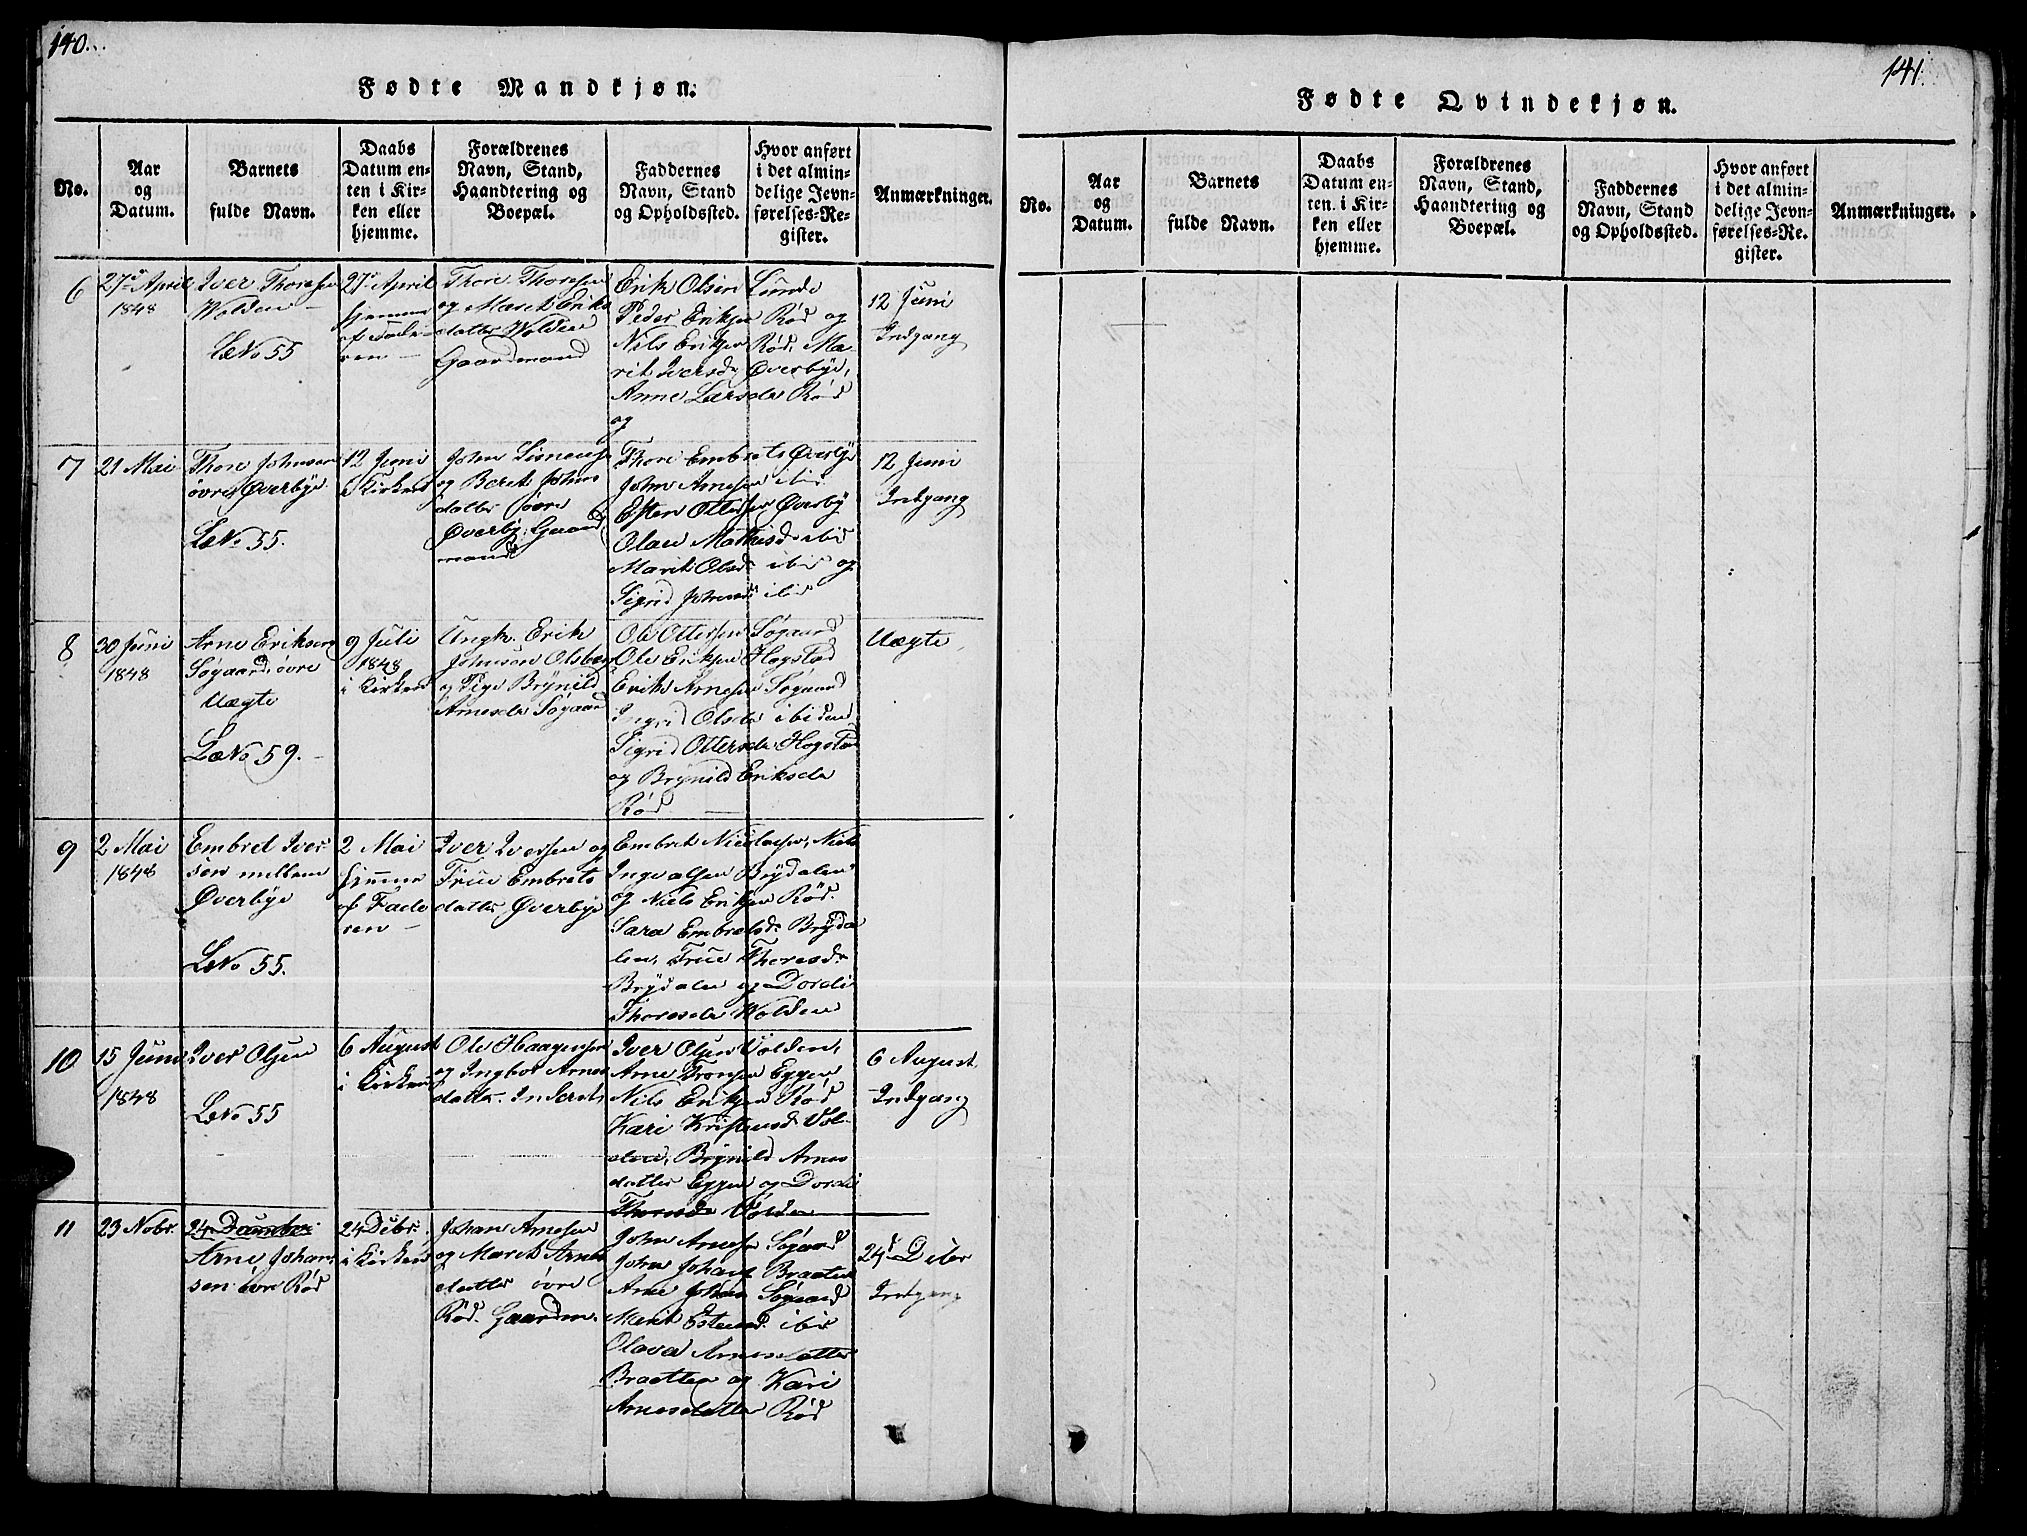 140.
Fødte Mandkjøn.
No.
Aar
og
Datum.
Barnets
fulde Navn.
Daabs
Datum en-
ten i Kir-
ken eller
hjemme.
Forældrenes
Navn, Stand,
Haandtering og
Boepæl.
Faddernes
Navn, Stand
og Opholdssted.
Hvor anført
i det almin-
delige Jevn-
førelses-Re-
gister.
Anmærkninger.
6
27de April
1848
Iver Thoresen
Wolden
LæNo 55
27de April
hjemme
af Fade-
ren
Thore Thoresen
og Marit Eriks
datter Wolden
Gaardmand
Erik Olsen Lunde
Peder Eriksen Rød og
Nils Eriksen Rød, Ma-
rit Iversdr Øverbye,
Anne Larsdr Rød
og
12 Juni
Indgang
7
21 Mai
Thore Johnsen
øvre Øverbye
LæNo 55.
12 Juni
i Kirken
John Simensen
og Beret Johns
datter øvre
Øverby, Gaard
mand
Thore Embrets Øverbye
John Arnesen ibid
Esten Ottersen Øverby
Olau Mathisd ibid
Marit Olsd ibid og
Sigrid Johnsd ibid
12 Juni
Indgang
8
30 Juni
1848
Arne Eriksen
Søgaard øvre
Uægte
LæNo 59.
9 Juli
1848
i Kirken
Ungk. Erik
Johnsen Olsberg
og Pige Brynild
Arnesdr Søgaard
Ole Ottersen Søgaard
Ole Eriksen Hogstad
Erik Arnesen Søgaard
Ingrid Olsdr ibidem
Sigrid Ottersdr Hogstad
og Brynild Eriksdr
Rød
Uægte
9
2 Mai
1848
Embret Iver-
sen mellem
Øverbye
LæNo 55.
2 Mai
hjemme
af Fade
ren
Iver Iversen og
Frue Embrets
datter Øverbye
Embret Nicolaisen, Niels
Ingvalsen Brydalen
og Niels Eriksen Rød.
Sara Embretsdr Bryda
len, Frue Thoresdr
Brydalen og Dordi
Thoresdr Wolden
10
15 Juni
1848
Iver Olsen
LæNo 55
6 August
i Kirken
Ole Haagensen
og Ingbor Arnes
datter Indset
Iver Olsen Volden,
Arne Tronsen Eggen
Nils Eriksen Rød
Kari Kristensd Vol-
den, Brynild Arnes
datter Eggen og Dordi
Thoresdr Volden
6 August
Indgang
11
23 Nobr.
24 December
Arne Johan-
sen øvre Rød
24 Debr.
i Kirken
Johan Arnesen
og Marit Arnes
datter øvre
Rød. Gaardm.
John Arnesen Søgaard
John Johans Braaten
Arne Johns Søgaard
Marit Estensd ibid
Olava Arnesdatter
Braatten og Kari
Arnesdatter Rød
24de Debr
Indgang
141.
Fødte Qvindekjøn.
No.
Aar
og
Datum.
Barnets
fulde Navn.
Daabs
Datum en-
ten i Kir-
ken eller
hjemme.
Forældrenes
Navn, Stand,
Haandtering og
Boepæl.
Faddernes
Navn, Stand
og Opholdssted.
Hvor anført
i det almin-
delige Jevn-
førelses-Re-
gister.
Anmærkninger.